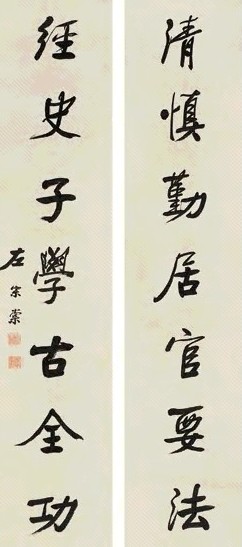 清慎勤居官要法
經史子學古全功
左宗棠